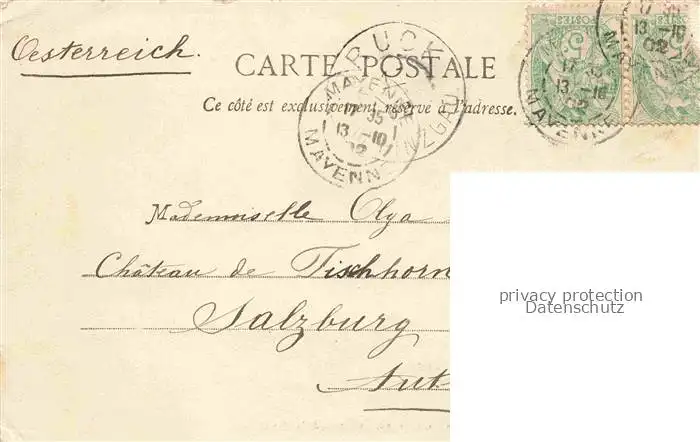 Oesterreich.
CARTE POSTALE
Ce côté est exclusivement réservé à l'adresse.
BRUCK
MAYENNE
17 35
13 -10
02
MAYENNE
MAYENNE
17 35
13 -10
02
MAYENNE
13 -10
02
POSTES
5
Mademoiselle Olga
Château de Fischhorn
Salzburg
privacy protection
Datenschutz